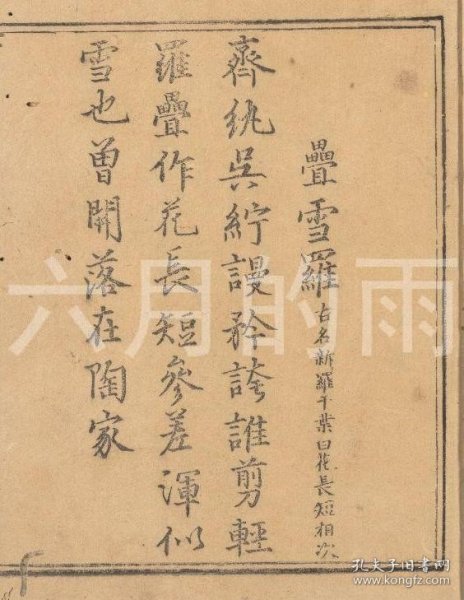 疊雪羅 古名新羅千葉白花長短相次
齊紈吳紵謾矜誇誰剪輕
羅疊作花長短參差渾似
雪也曽開落在陶家
六月的雨
孔夫子旧书网
www.kongfz.com